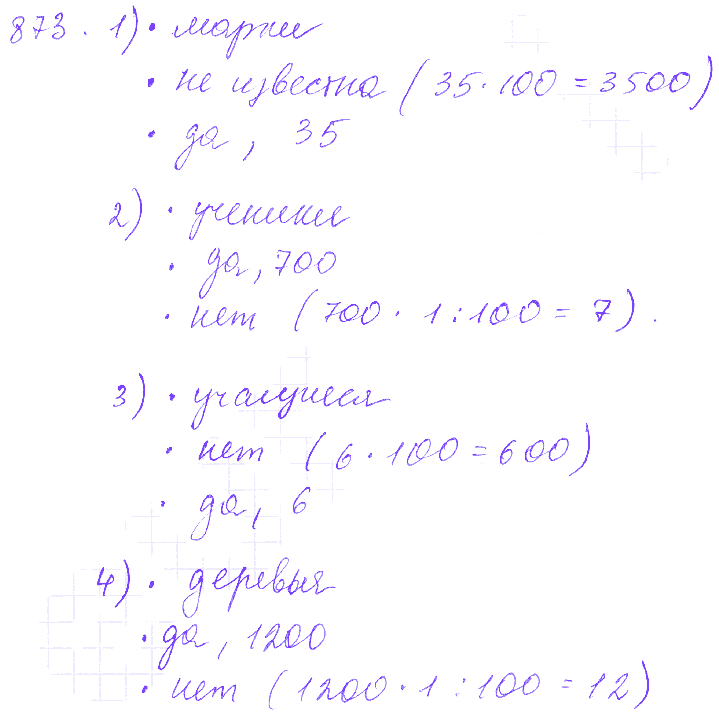 873. 1) • марки
• не известна (35·100 = 3500)
• да, 35
2) • ученики
• да, 700
• нет (700 · 1 : 100 = 7).
3) • учащиеся
• нет (6 · 100 = 600)
• да, 6
4) • деревья
• да, 1200
• нет (1200 · 1 : 100 = 12)